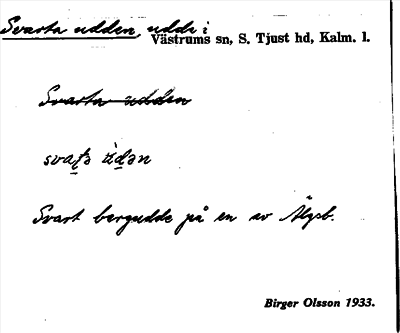 Svarta udden, udde i
Västrums sn, S. Tjust hd, Kalm. l.
Svarta udden
svaṭə ùdən
Svart bergudde på en av Älgsb.
Birger Olsson 1933.